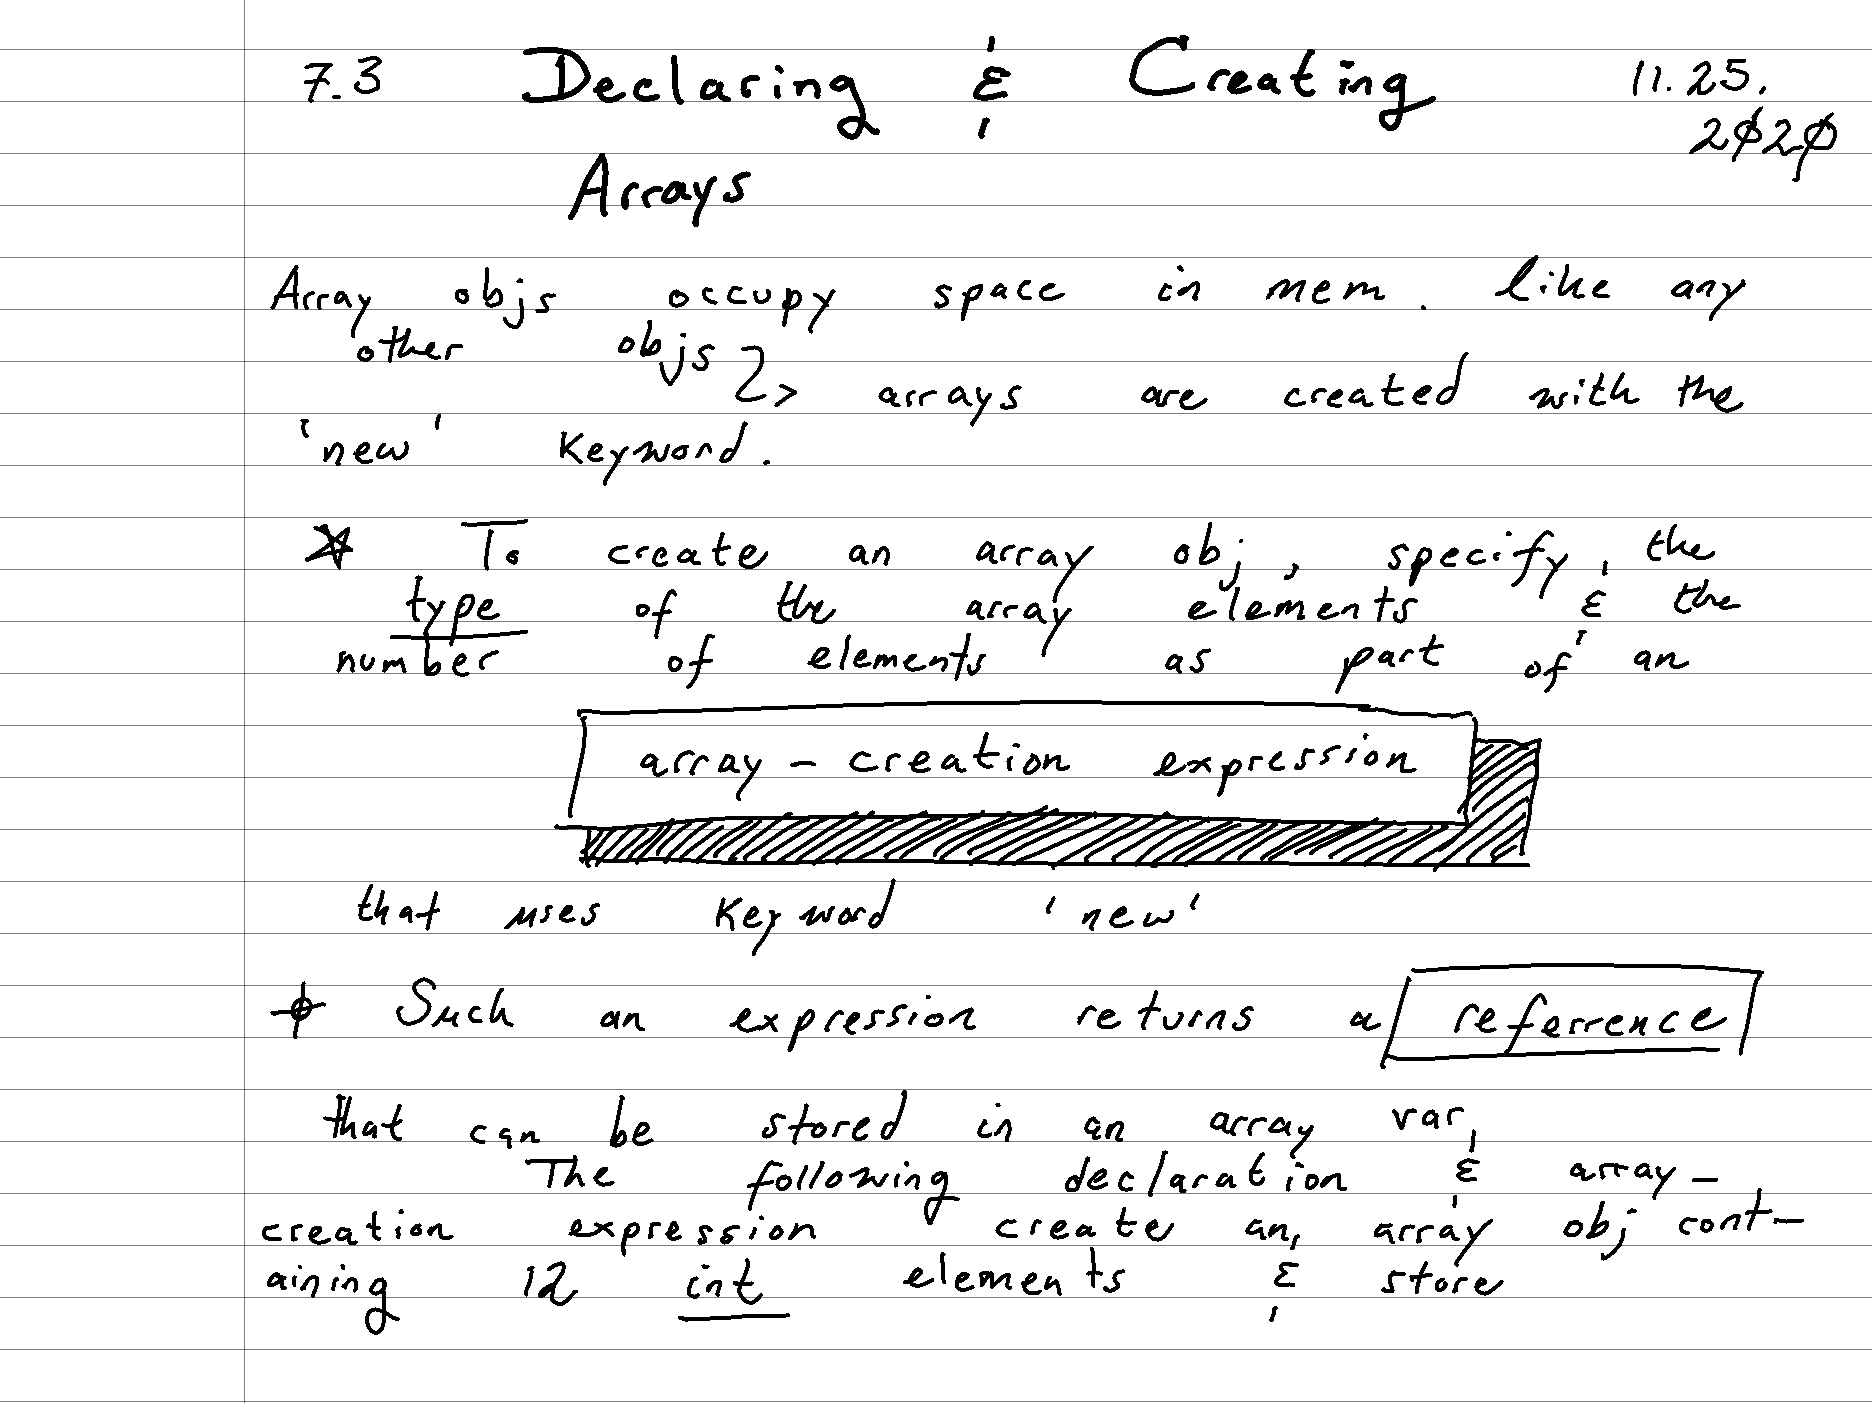 7.3 Declaring & Creating 11.25.
2020
Arrays
Array objs occupy space in mem. like any
other objs
> arrays are created with the
'new' keyword.
☆ To create an array obj, specify the
type of the array elements & the
number of elements as part of an
array-creation expression
that uses keyword 'new'
Such an expression returns a referrence
that can be stored in an array var,
The following declaration & array-
creation expression create an array obj cont-
aining 12 int elements & store